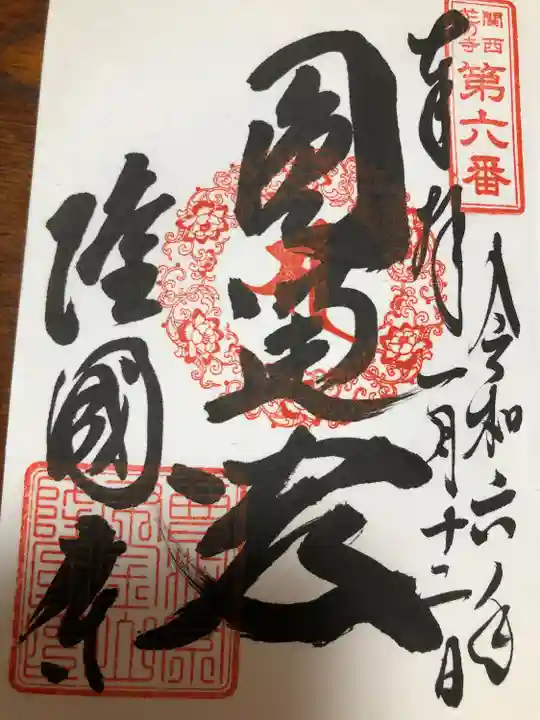 関西
花の寺
第六番
令和六年
奉拝 一月十二日
圓通殿
隆國寺